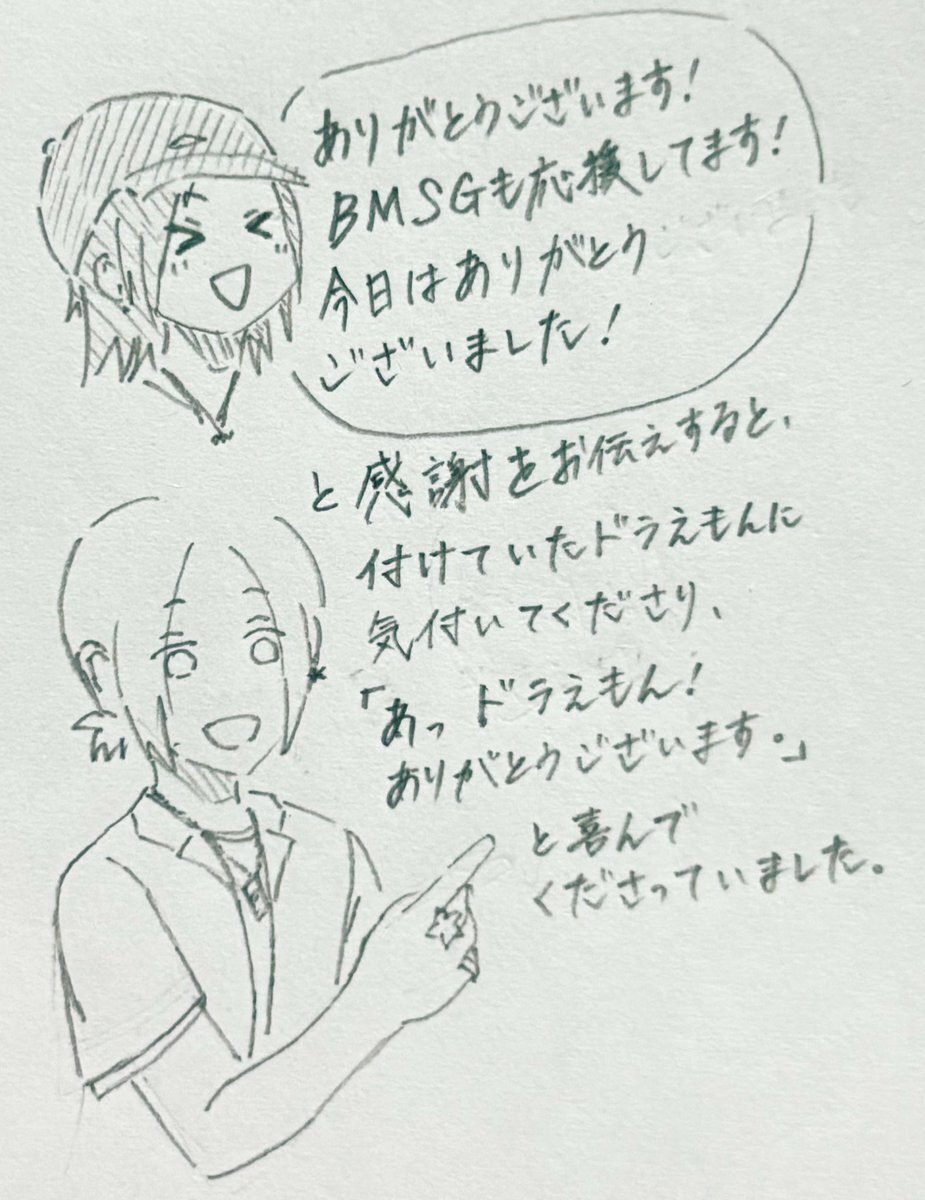 ありがとうございます!
BMSGも応援してます!
今日はありがとう
ございました!
と感謝をお伝えすると、
付けていたドラえもんに
気付いてくださり、
「あっ ドラえもん!
ありがとうございます。」
と喜んで
くださっていました。